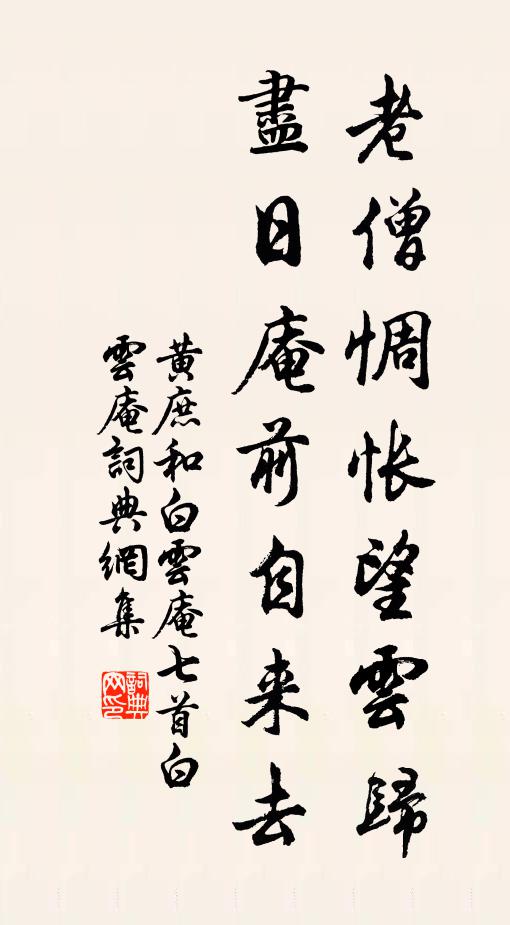 老僧惆怅望雲歸
盡日庵前自来去
黄庶和白雲庵七首白
雲庵詞典網集
詞典網印